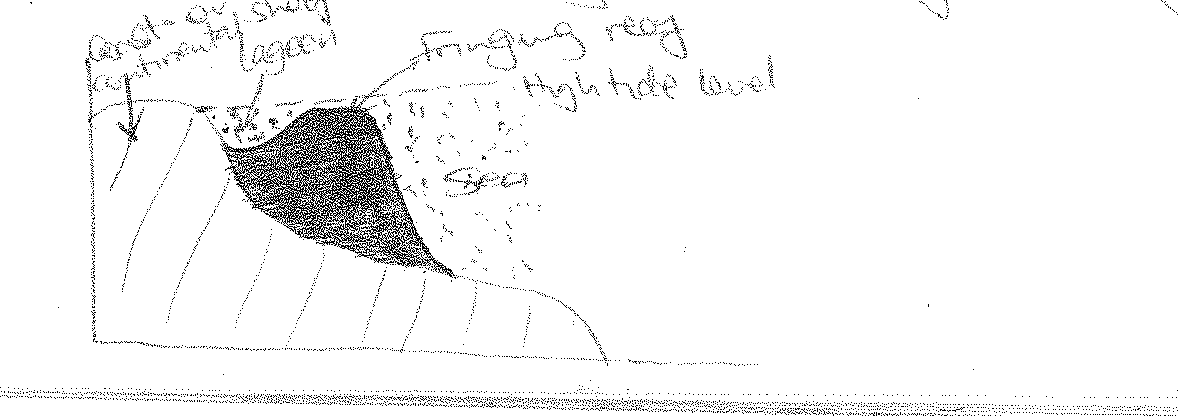 Land or
continental shelf
Lagoon
Fringing reef
High tide level
Sea